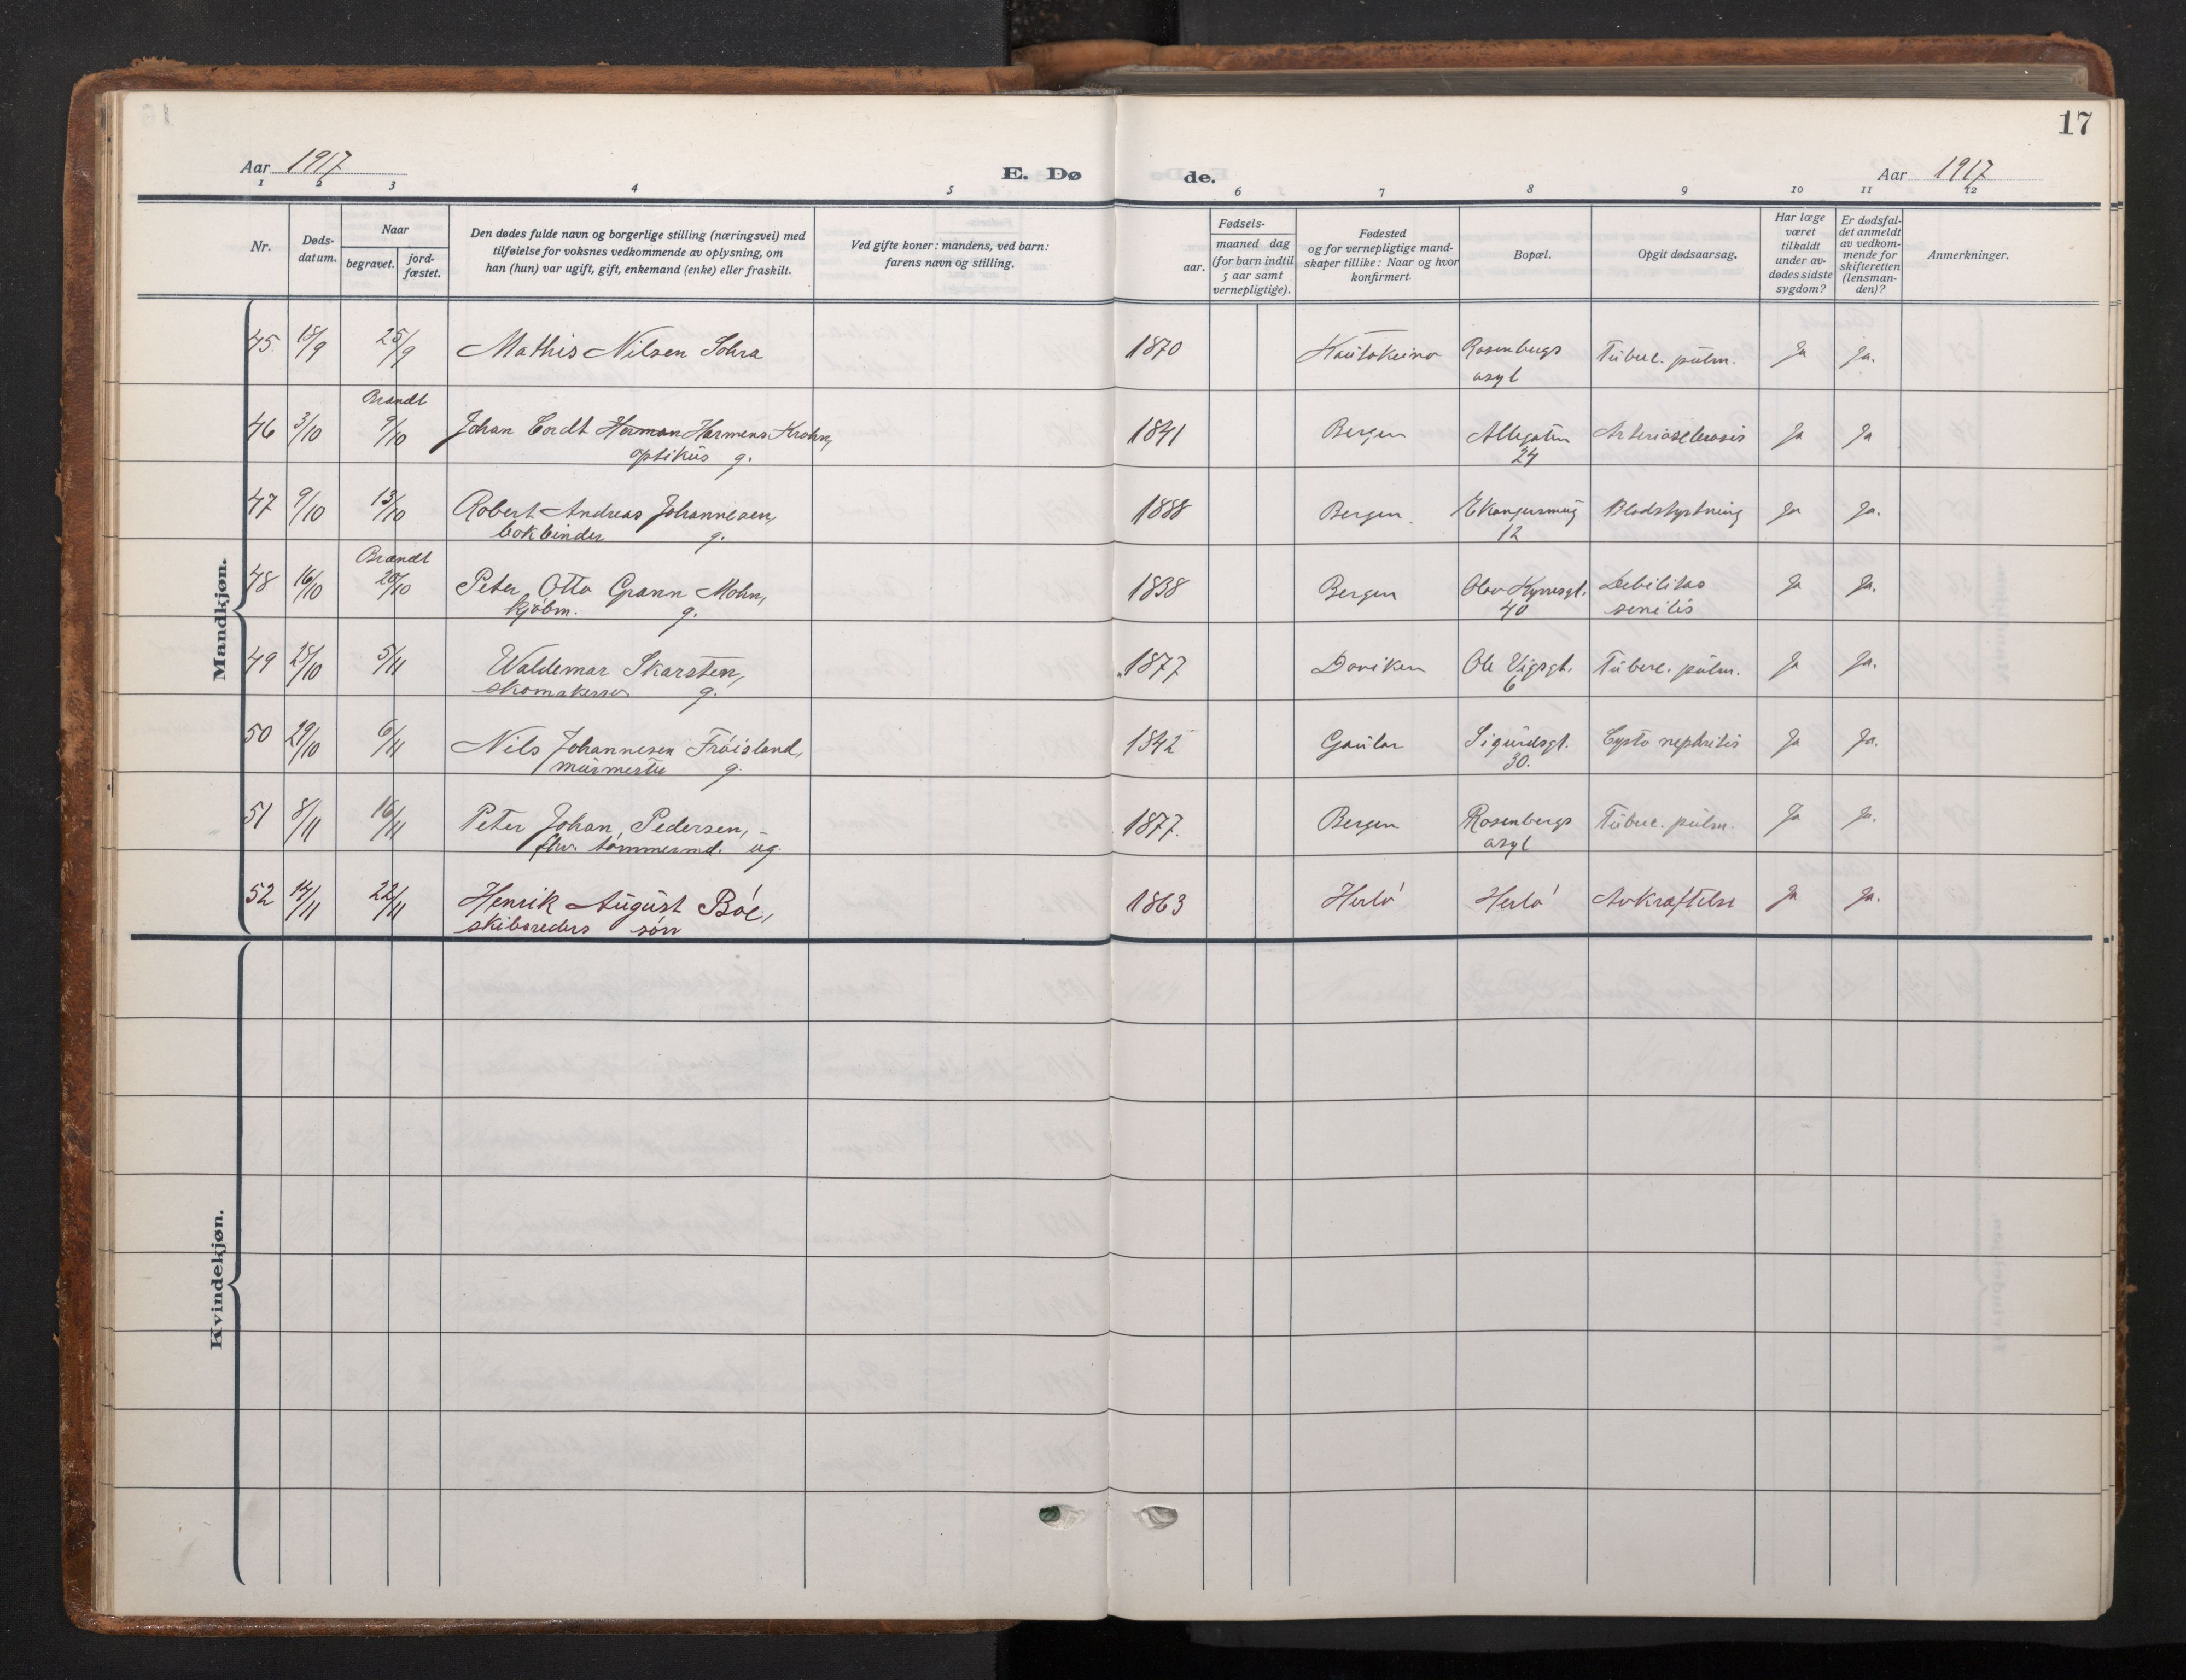 17
Aar 1917
E. Dø
de.
Aar 1917
1 2 3 4 5 6 7 8 9 10 11 12
Nr.
Døds-
datum.
Naar
begravet.
jord-
fæstet.
Den dødes fulde navn og borgerlige stilling (næringsvei) med
tilføielse for voksnes vedkommende av oplysning, om
han (hun) var ugift, gift, enkemand (enke) eller fraskilt.
Ved gifte koner: mandens, ved barn:
farens navn og stilling.
Fødsels-
aar.
maaned dag
(for barn indtil
5 aar samt
vernepligtige).
Fødested
og for vernepligtige mand-
skaper tillike: Naar og hvor
konfirmert.
Bopæl.
Opgit dødsaarsag.
Har læge
været
tilkaldt
under av-
dødes sidste
sygdom?
Er dødsfal-
det anmeldt
av vedkom-
mende for
skifteretten
(lensman-
den)?
Anmerkninger.
Mandkjøn.
45 18/9 25/9 Mathis Nilsen 1870 Kautokeino Rosenbergs Tuberc. pulm. Ja Ja.
asyl
Brandt
46 3/10 9/10 Johan Cordt Herman Harmens Krohn, 1841 Bergen Allegaten Arteriosclerosis Ja Ja
optikus g. 24
47 9/10 13/10 Robert Andreas Johannesen, 1888 Bergen Blodstyrtning Ja Ja.
bokbinder g. 12
Brandt
48 16/10 20/10 Peter Otto Grann Mohn, 1838 Bergen Olav Kyrresgt. Debilitas Ja Ja.
kjøbm. g. 40 senilis
49 28/10 5/11 Waldemar Skarsten, 1877 Ole Vigsgt. Tuberc. pulm. Ja Ja.
skomakersv. g. 6
50 29/10 6/11 Nils Johannesen Frøisland, 1842 Gaular Sigurdsgt. Cysto nephritis Ja Ja.
murmester g. 30.
51 8/11 16/11 Peter Johan Pedersen, 1877. Bergen Rosenbergs Tuberc. pulm. Ja Ja.
fhv. tømmermd. ug. asyl
52 14/11 22/11 Henrik August Bøe, 1863 Herlø Herlø Avkræftelse Ja Ja.
skibsreders søn
Kvindekjøn.